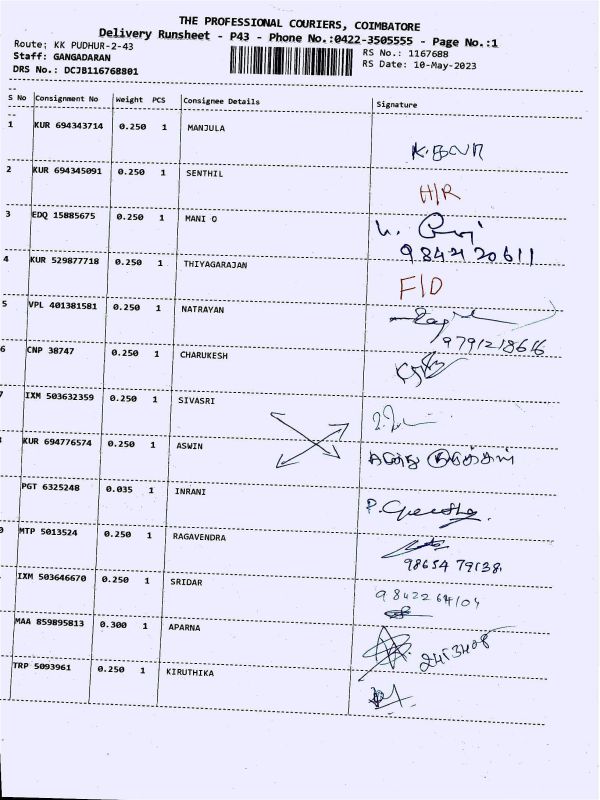 THE PROFESSIONAL COURIERS, COIMBATORE
Delivery Runsheet - P43 - Phone No.:0422-3505555 - Page No.:1
Route: KK PUDHUR-2-43 RS No.: 1167688
Staff: GANGADARAN RS Date: 10-May-2023
DRS No.: DCJB116768801
S No Consignment No Weight PCS Consignee Details Signature
1 KUR 694343714 0.250 1 MANJULA
2 KUR 694345091 0.250 1 SENTHIL H/R
3 EDQ 15885675 0.250 1 MANI O
9842120611
4 KUR 529877718 0.250 1 THIYAGARAJAN F/D
5 VPL 401381581 0.250 1 NATRAYAN
9791218616
6 CNP 38747 0.250 1 CHARUKESH
7 IXM 503632359 0.250 1 SIVASRI
KUR 694776574 0.250 1 ASWIN
PGT 6325248 0.035 1 INRANI P. Geetha
0 MTP 5013524 0.250 1 RAGAVENDRA
98654 79138
IXM 503646670 0.250 1 SRIDAR 9842264104
MAA 859895813 0.300 1 APARNA 2453408
TRP 5093961 0.250 1 KIRUTHIKA